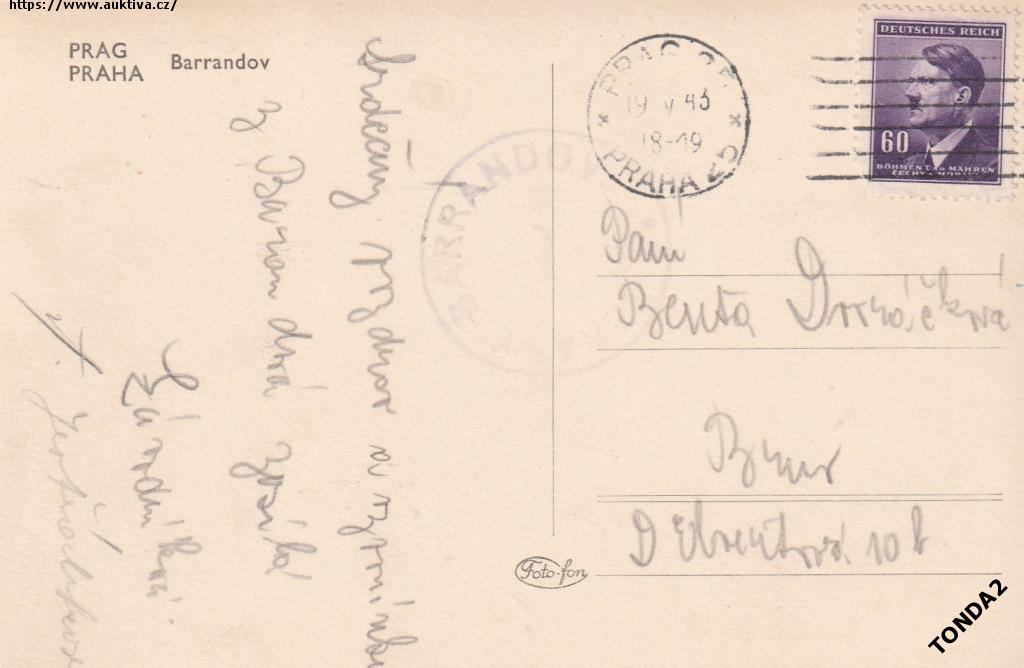 https://www.auktiva.cz/
PRAG
PRAHA
Barrandov
Srdečný pozdrav a vzpomínku
z Barandova zasílá
PRAG 25
19 V 43
18-19
PRAHA 25
BARRANDOV
DEUTSCHES REICH
60
BÖHMEN UND MÄHREN
ČECHY A MORAVA
Paní
Berta Dvořáčková
Brno
10
Foto-fon
TONDA2